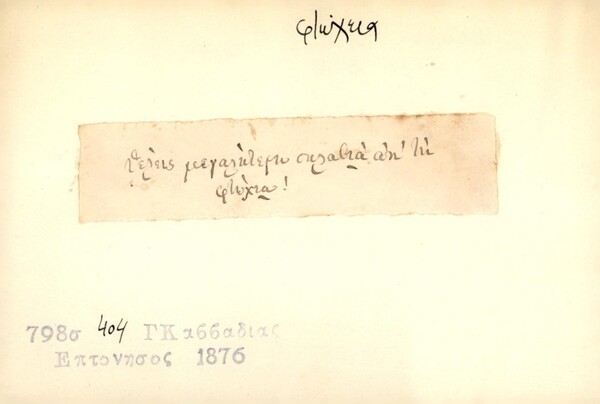 φτώχεια
Θέλεις μεγαλήτερη σκλαβιὰ ἀπ' τὴ
φτώχια!
798σ 404 ΓΚασσαδιας
Επτονησος 1876